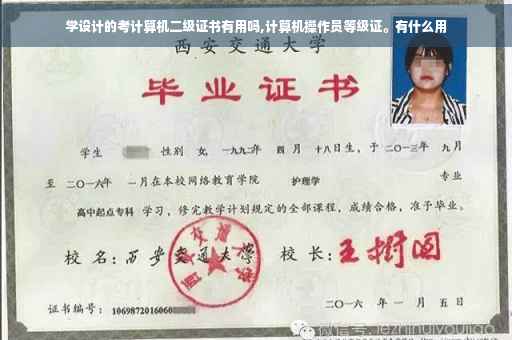 学设计的考计算机二级证书有用吗,计算机操作员等级证。有什么用
西安交通大学
毕业证书
学生 性别 女, 一九九二年 四 月 十八日生, 于 二〇一三年 九月
至 二〇一六年 一月在本校网络教育学院 护理学 专业
高中起点专科 学习, 修完教学计划规定的全部课程, 成绩合格, 准予毕业。
校 名: 西安交通大学 校 长: 王树国
证书编号: 1069872016060 二〇一六 年 一 月 五 日
微信号: jezhihuiyoujiao